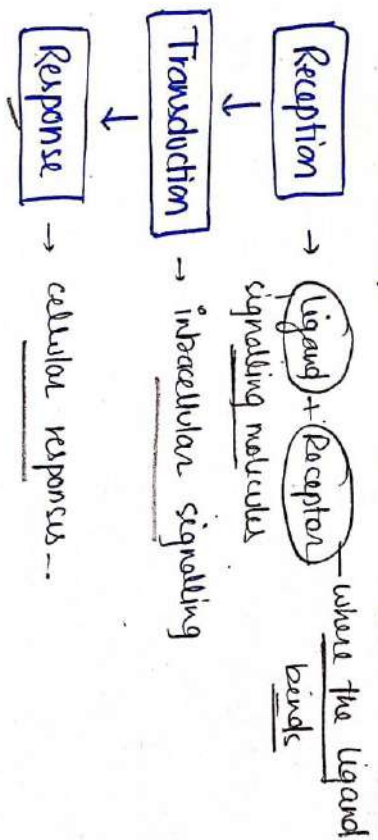 Reception → Ligand + Receptor — where the ligand
binds
signalling molecules
↓
Transduction → intracellular signalling
↓
Response → cellular responses...